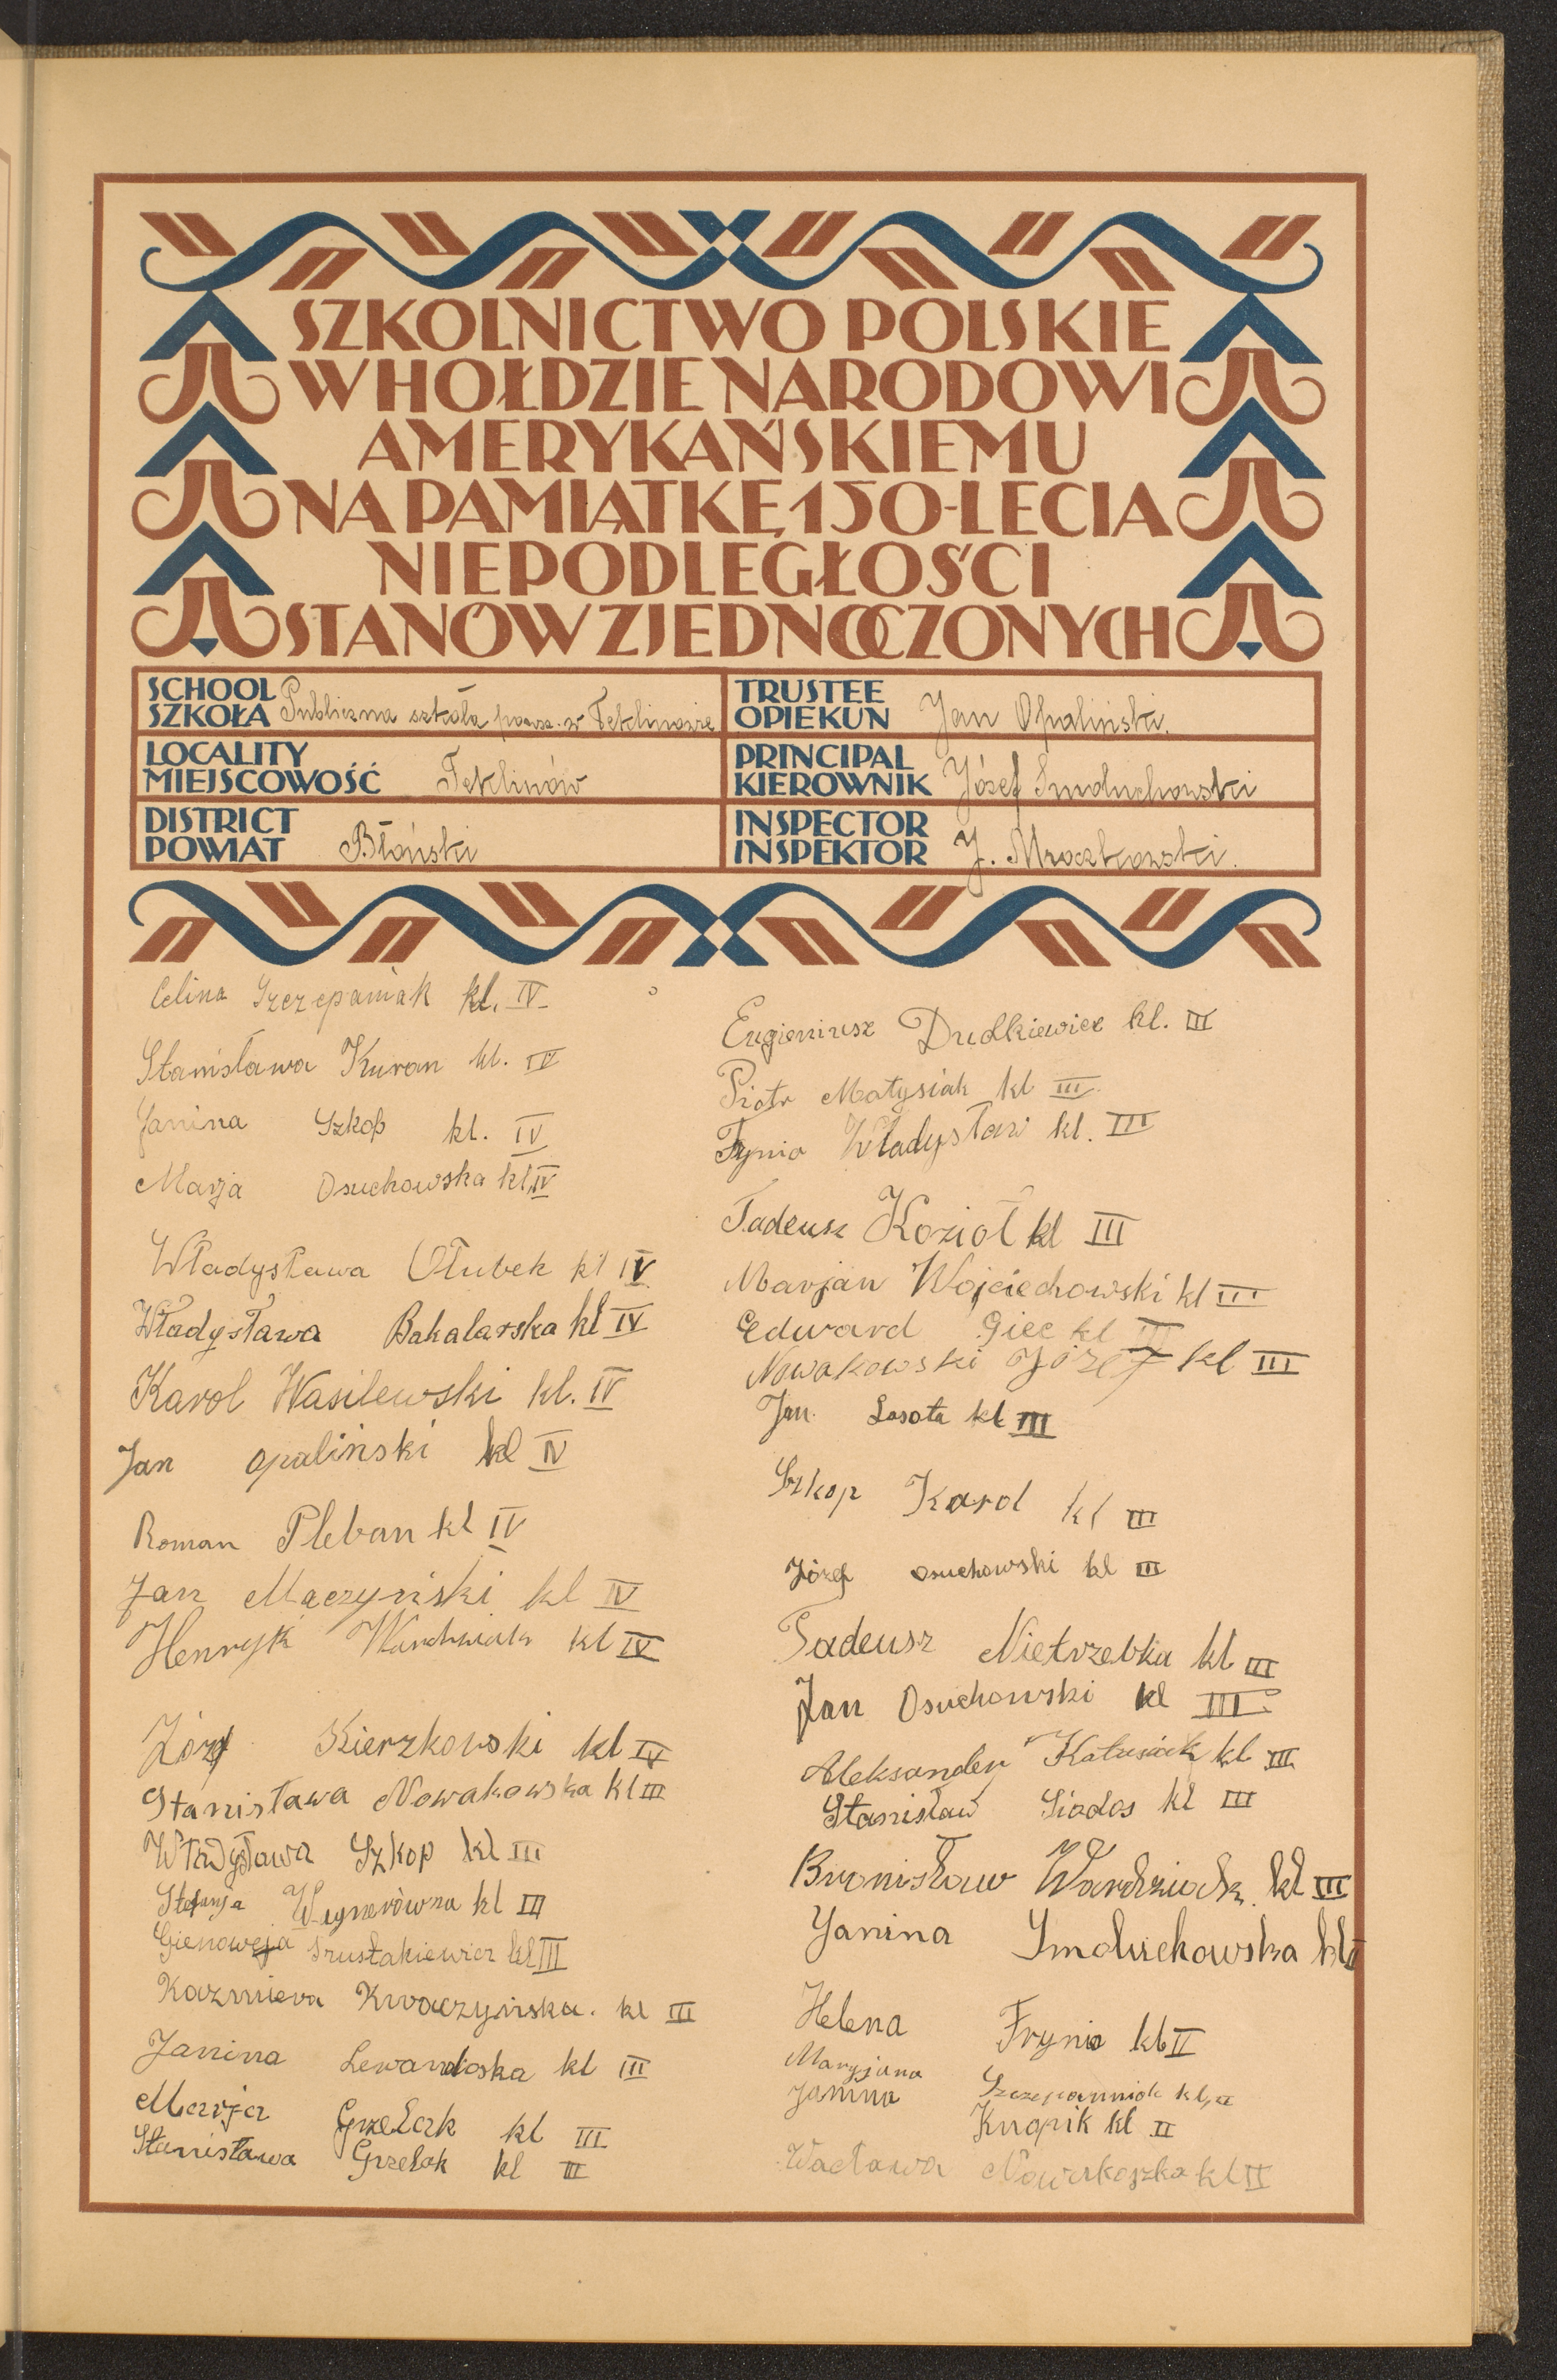 SZKOLNICTWO POLSKIE
W HOŁDZIE NARODOWI
AMERYKAŃSKIEMU
NA PAMIĄTKĘ 150-LECIA
NIEPODLEGŁOŚCI
STANÓW ZJEDNOCZONYCH
SCHOOL
SZKOŁA Publiczna szkoła powsz. w Teklinowie
TRUSTEE
OPIEKUN Jan Opaliński.
LOCALITY
MIEJSCOWOŚĆ Teklinów
PRINCIPAL
KIEROWNIK Józef Smoluchowski
DISTRICT
POWIAT Błoński
INSPECTOR
INSPEKTOR J. Mroczkowski.
Celina Szczepaniak kl. IV
Stanisława Kuran kl. IV
Janina Szkop kl. IV
Marja Osuchowska kl. IV
Władysława Ołubek kl IV
Władysława Bakalarska kl IV
Karol Wasilewski kl. IV
Jan Opaliński kl IV
Roman Pleban kl IV
Jan Maczyński kl IV
Henryk kl IV
Józef Kierzkowski kl IV
Stanisława Nowakowska kl III
Władysława Szkop kl III
Stefanja Wegnerówna kl III
Gienowefa Szustakiewicz kl III
Kazmiera Kwaczyńska. kl III
Janina Lewandoska kl III
Marja Grzelak kl III
Stanisława Grzelak kl III
Eugieniusz Dudkiewicz kl. III
Piotr Matysiak kl III
Frynia Władysław kl. III
Tadeusz Kozioł kl III
Marjan Wojciechowski kl III
Edward Giec kl III
Nowakowski Józef kl III
Jan Lasota kl III
Szkop Karol kl III
Józef Osuchowski kl III
Tadeusz Nietrzebka kl III
Jan Osuchowski kl III
Aleksander kl III
Stanisław Siadas kl III
Bronisław Wardziack kl III
Janina Smoluchowska kl II
Helena Frynia kl II
Maryjana Szczepanniak kl, II
Janina Knapik kl II
Wacława Nowakoszka kl II